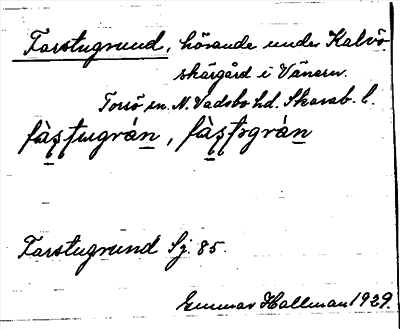 Farstugrund, hörande under Kalvö
skärgård i Vänern.
Torsö sn. N. Vadsbo hd. Skarab. l.
fàs̠t̠ugrún̠, fàs̠t̠ǝgrún̠
Farstugrund Sj. 85.
Gunnar Hallman 1929.